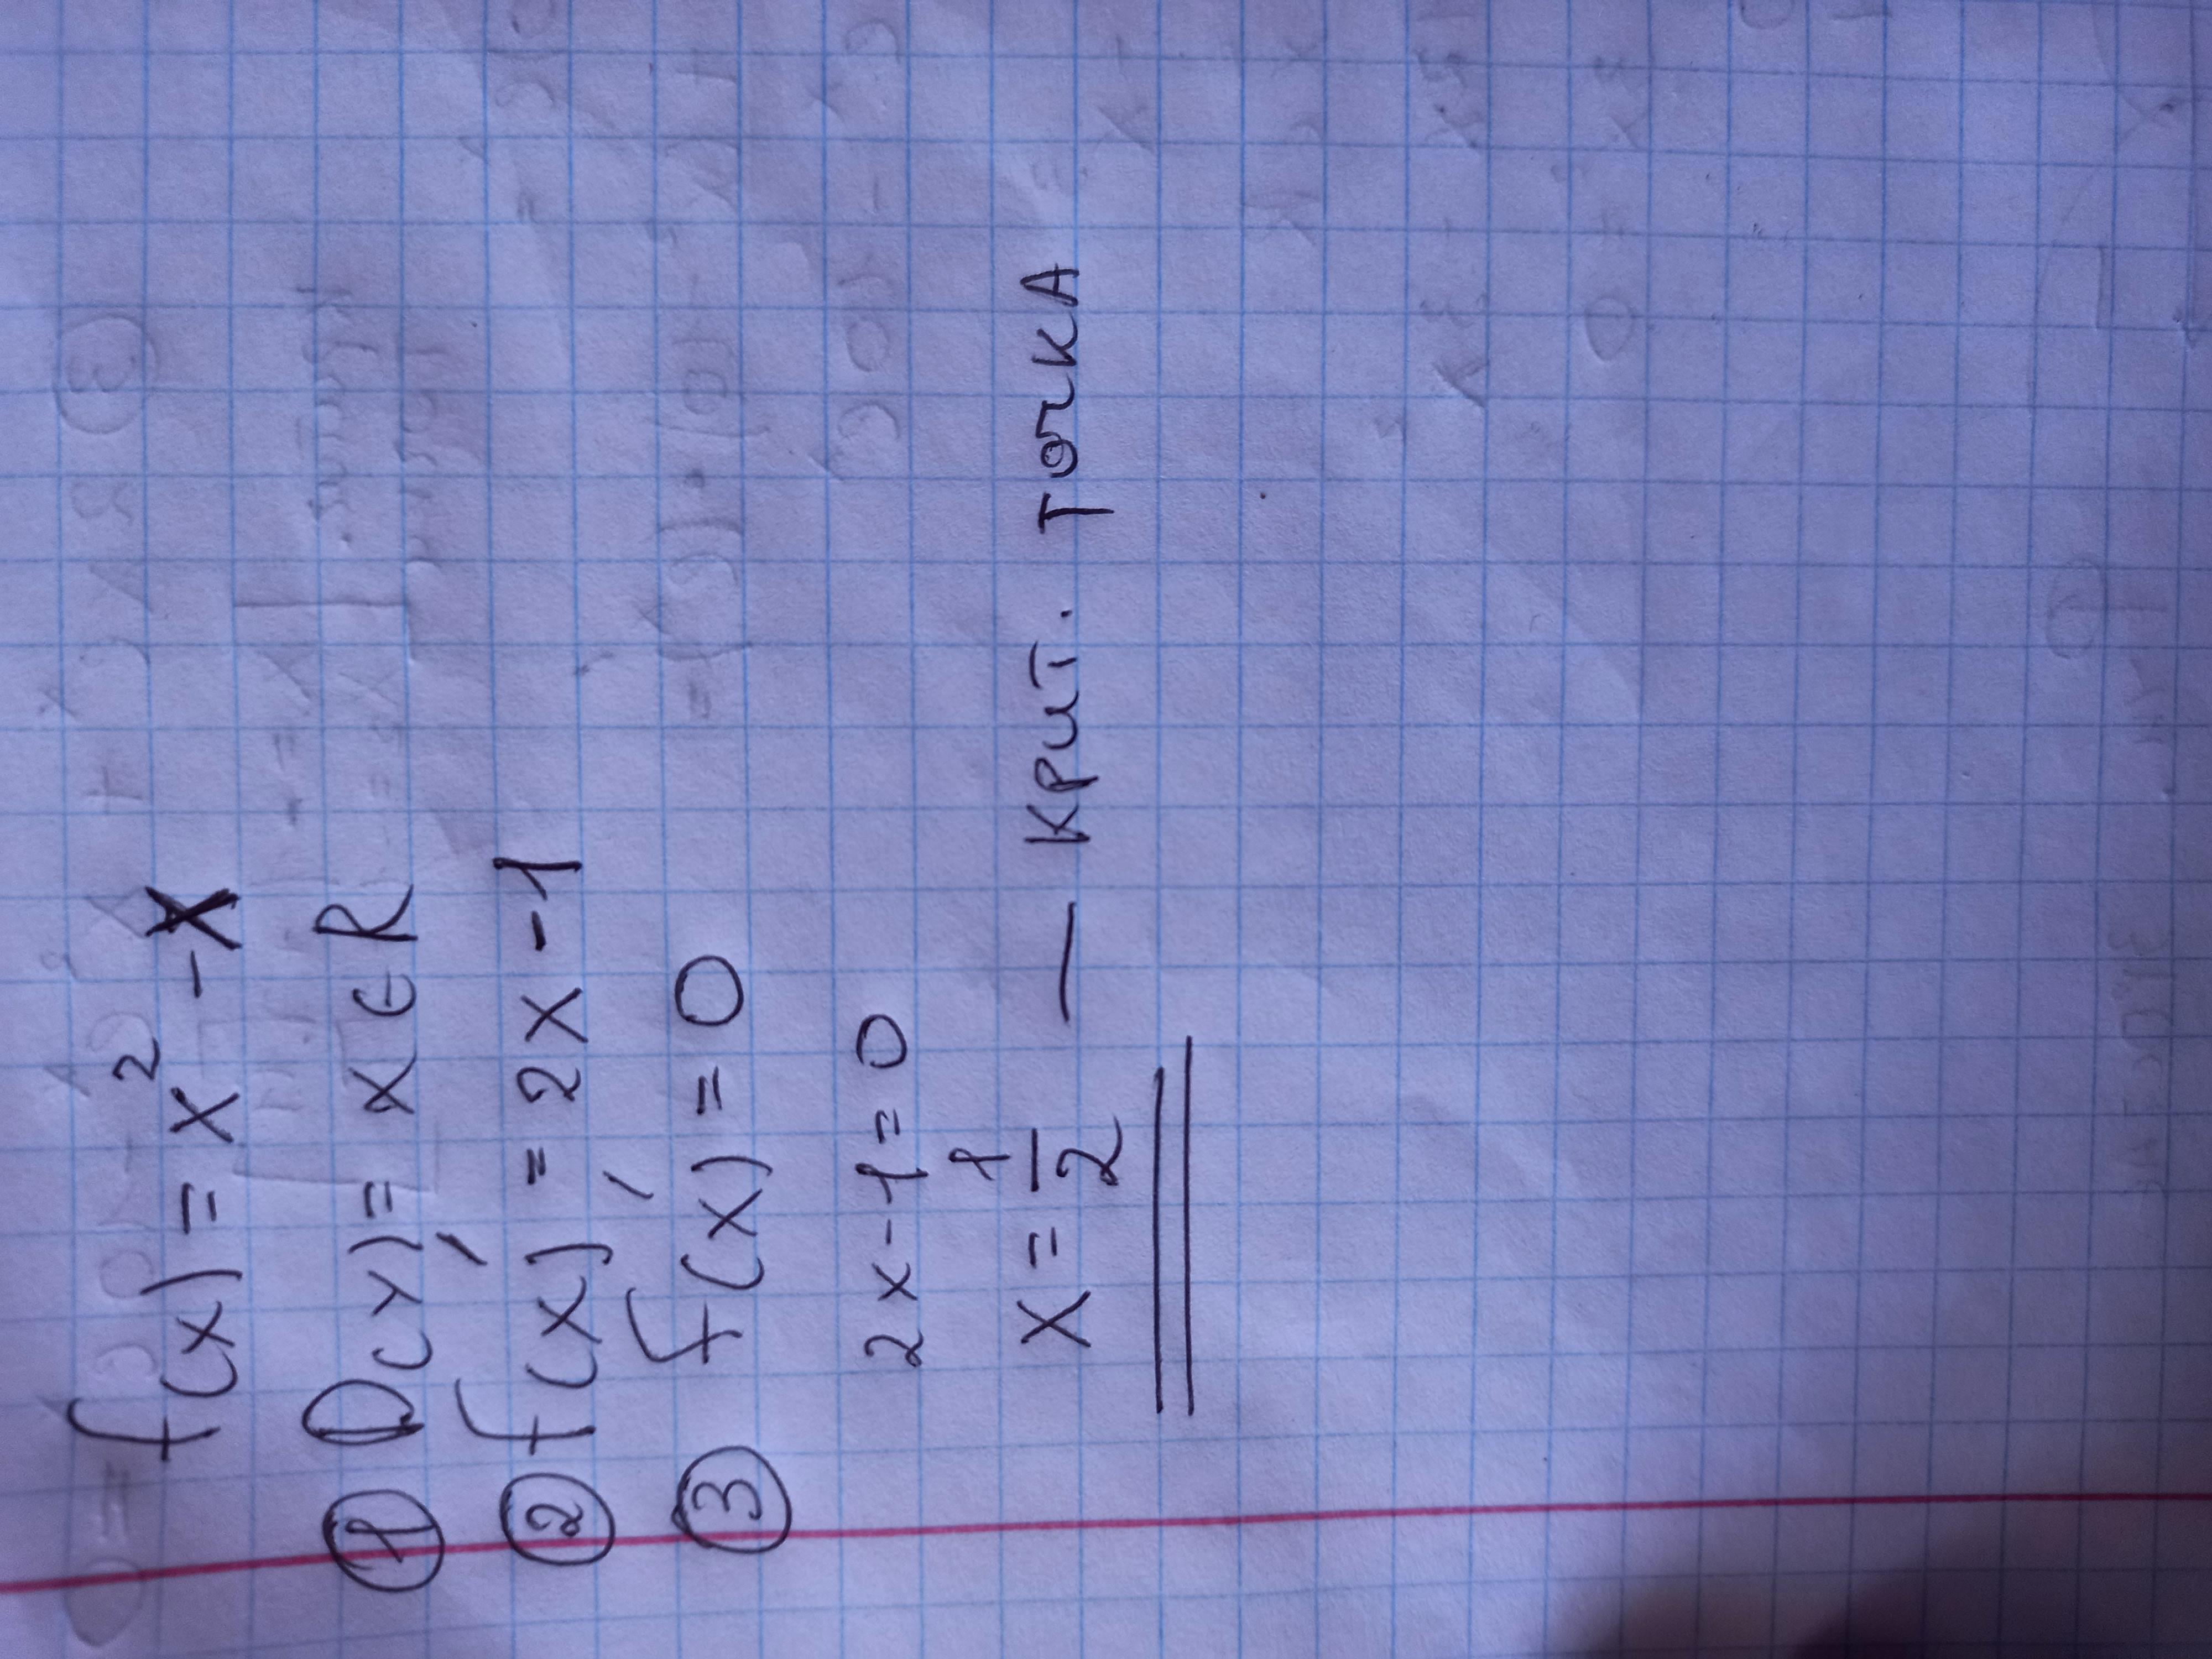 f(x) = x² - x
① D(y) = x ∈ R
② f'(x) = 2x - 1
③ f'(x) = 0
2x - 1 = 0
x = 1/2 — крит. точка